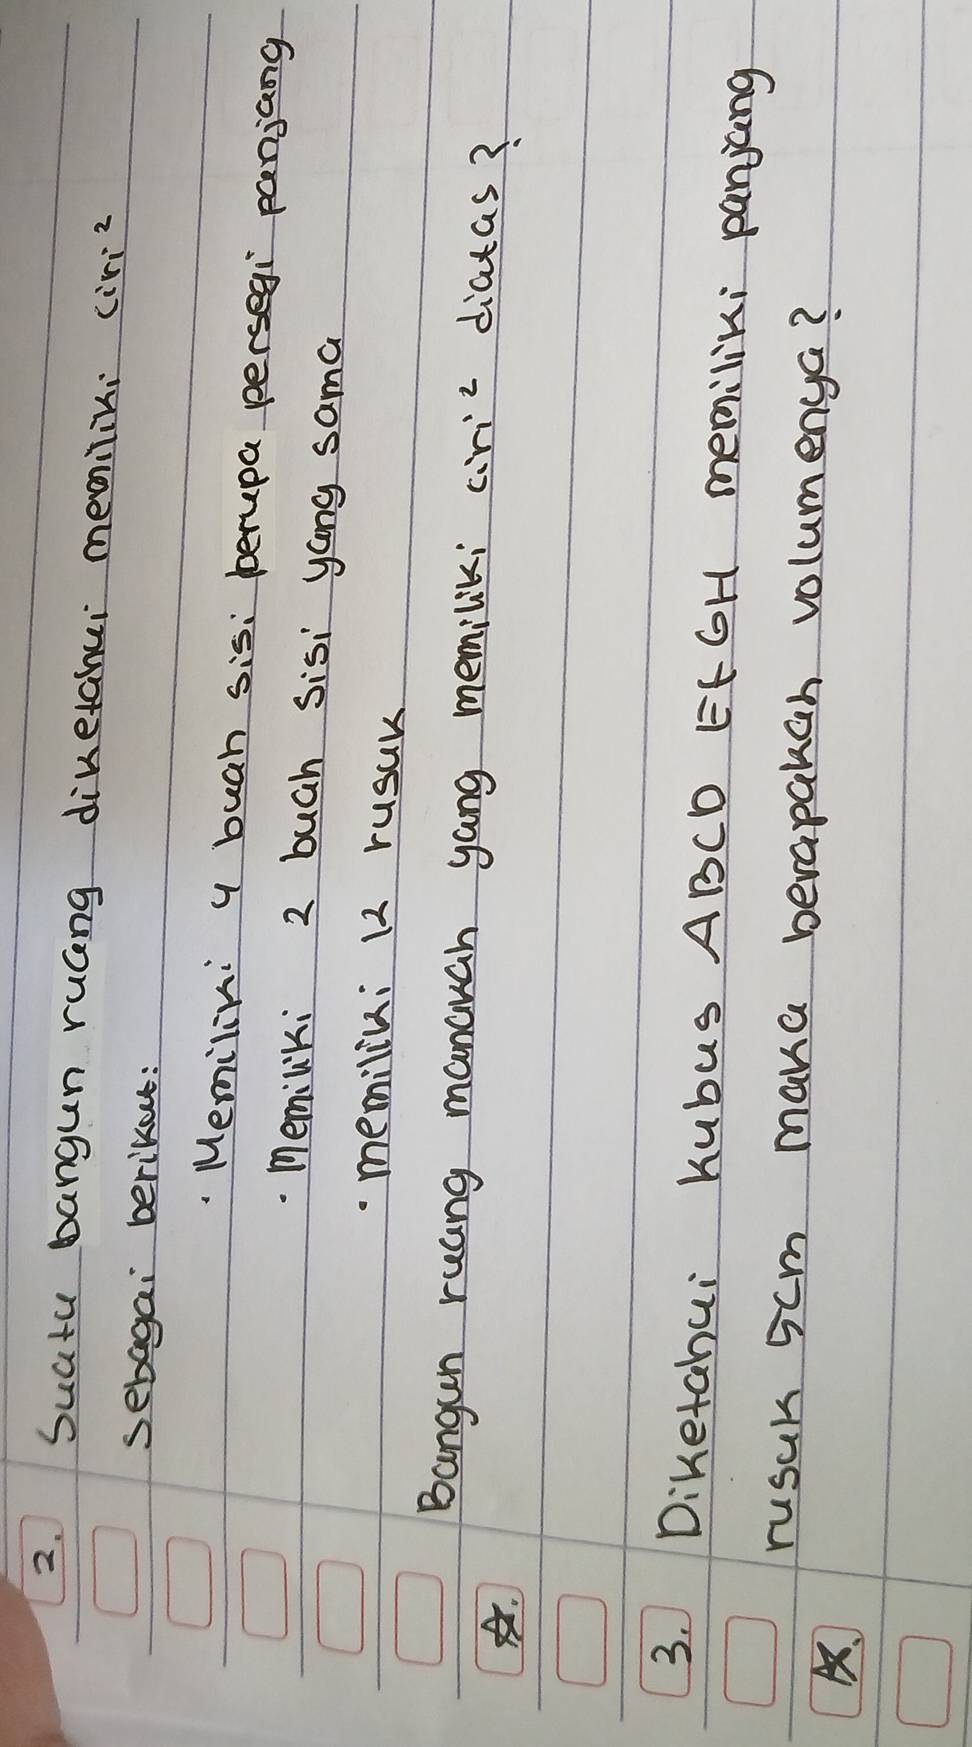 2. Suatu bangun ruang diketahui memiliki ciri²
sebagai berikut:
· Memiliki 4 buah sisi berupa persegi panjang
· Memiliki 2 buah sisi yang sama
· memiliki 12 rusuk
Bangun ruang manakah yang memiliki ciri² diatas?
☆.
3. Diketahui kubus ABCD EFGH memiliki panjang
rusuk 5cm maka berapakah volumenya?
☆.